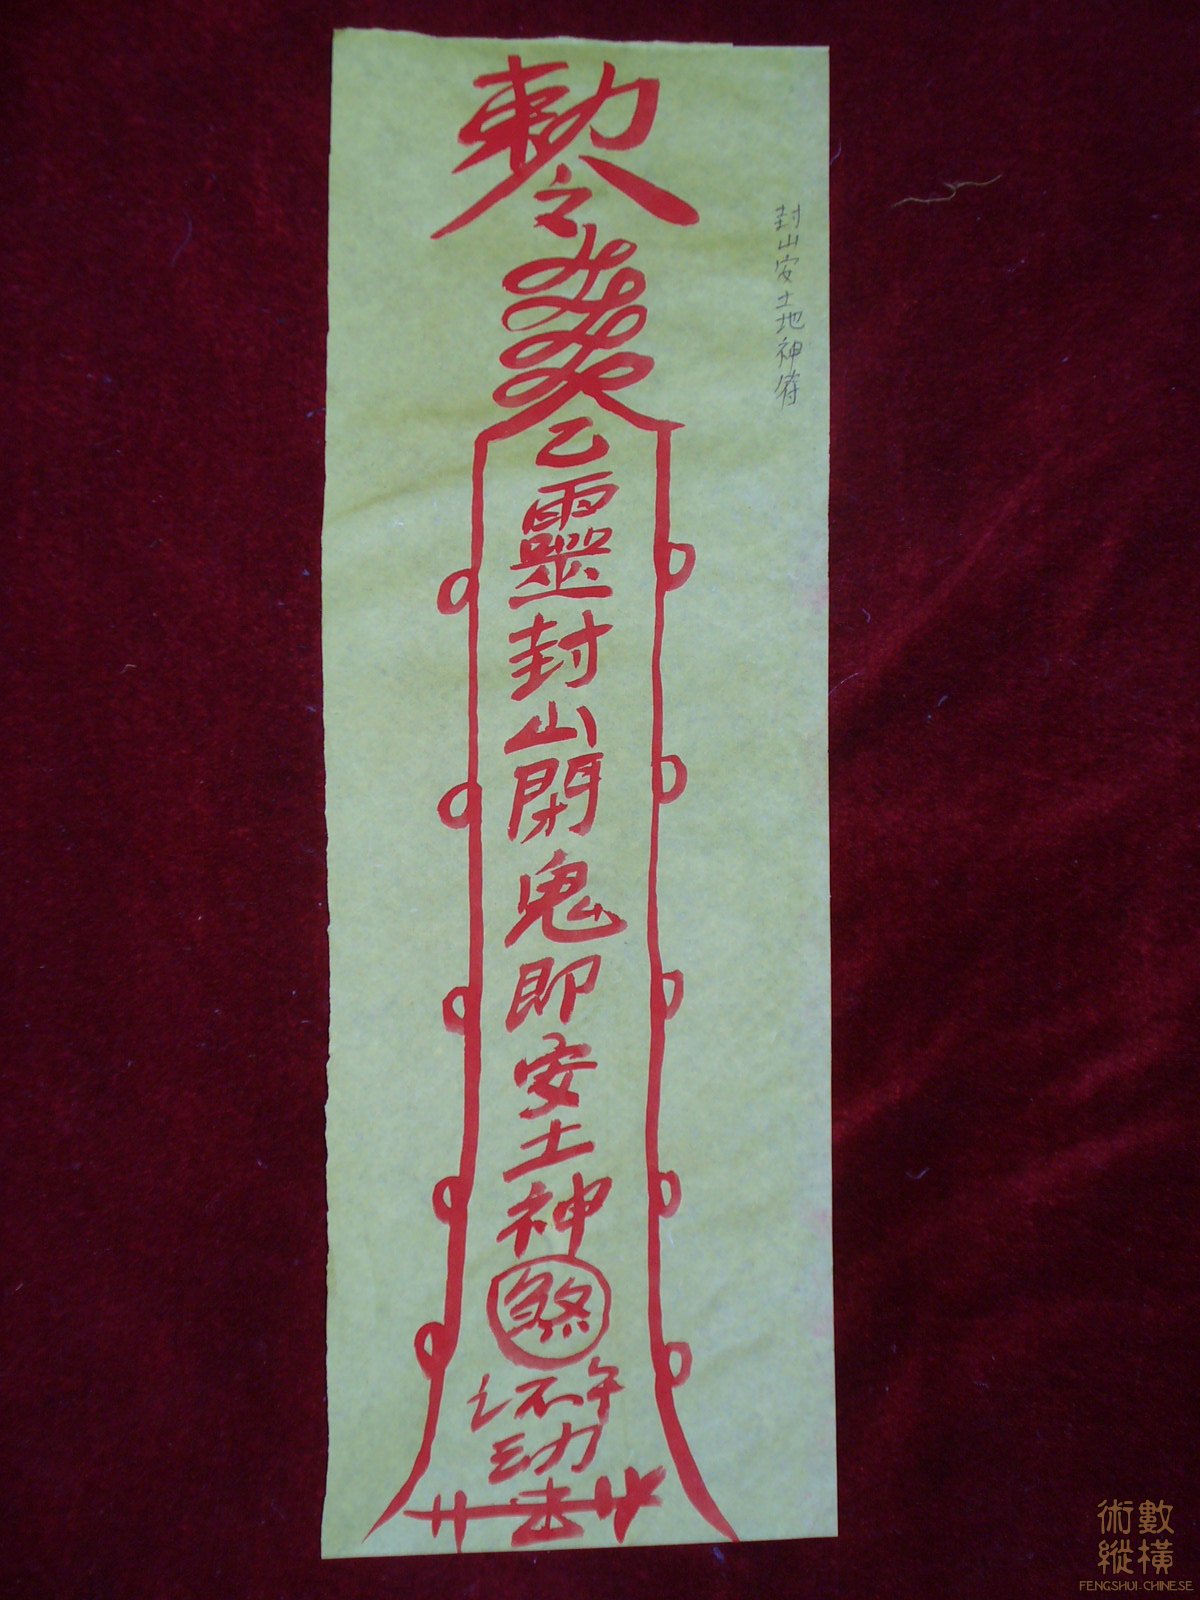 封山安土地神符
敕令
乙靈封山閉鬼即安土神煞
不許
動
術數
縱橫
FENGSHUI-CHINESE